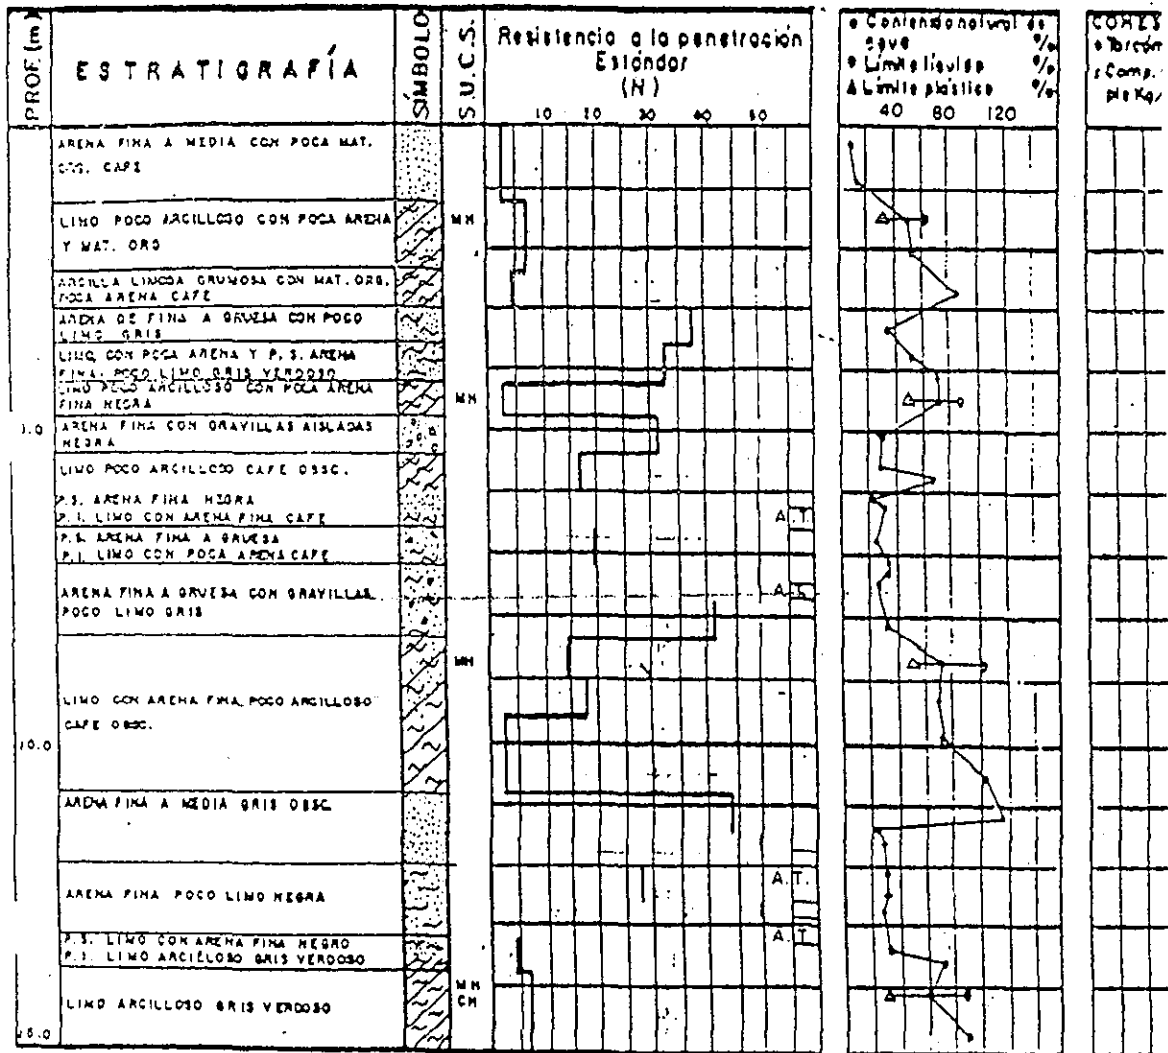 PROF. (m)
ESTRATIGRAFÍA
SÍMBOLO
S.U.C.S.
Resistencia a la penetración
Estándar
(N)
10 20 30 40 50
Contenido natural de
agua %
Límite líquido %
Límite plástico %
40 80 120
ARENA FINA A MEDIA CON POCA MAT.
ORG. CAFE
LIMO POCO ARCILLOSO CON POCA ARENA
Y MAT. ORG
MH
ARCILLA LIMOSA GRUMOSA CON MAT. ORG.
POCA ARENA CAFE
ARENA DE FINA A GRUESA CON POCO
LIMO GRIS
LIMO, CON POCA ARENA Y P. S. ARENA
FINA, POCO LIMO GRIS VERDOSO
LIMO POCO ARCILLOSO CON POCA ARENA
FINA NEGRA
MH
ARENA FINA CON GRAVILLAS AISLADAS
NEGRA
LIMO POCO ARCILLOSO CAFE OBSC.
P.S. ARENA FINA NEGRA
P.I. LIMO CON ARENA FINA CAFE
A.T.
P.S. ARENA FINA A GRUESA
P.I. LIMO CON POCA ARENA CAFE
ARENA FINA A GRUESA CON GRAVILLAS
POCO LIMO GRIS
MH
LIMO CON ARENA FINA, POCO ARCILLOSO
CAFE OBSC.
10.0
ARENA FINA A MEDIA GRIS OBSC.
ARENA FINA POCO LIMO NEGRA
A.T.
P.S. LIMO CON ARENA FINA NEGRO
P.I. LIMO ARCILLOSO GRIS VERDOSO
A.T.
LIMO ARCILLOSO GRIS VERDOSO
MH
CH